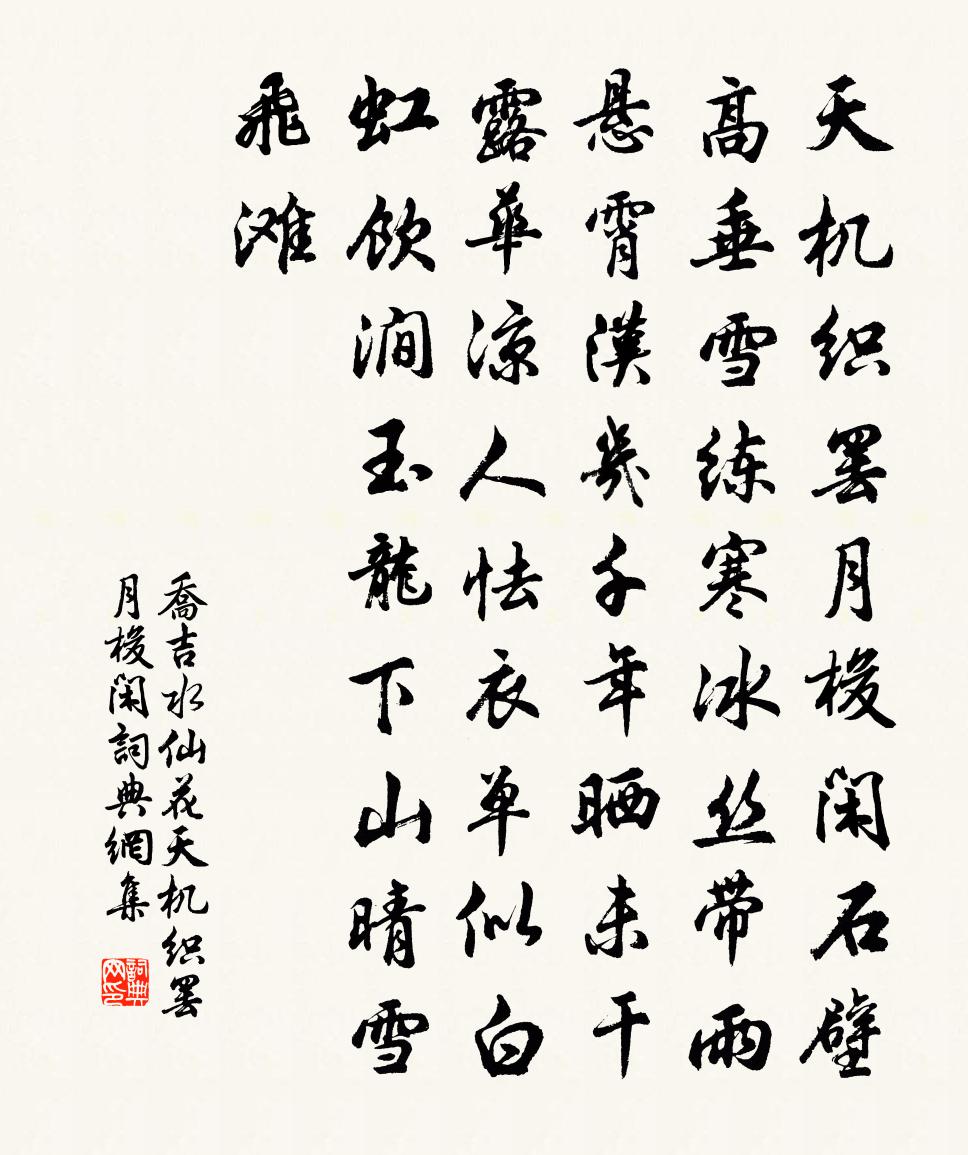 天机织罢月梭闲石壁
高垂雪练寒冰丝带雨
悬霄漢幾千年晒未干
露華凉人怯衣单似白
虹飲澗玉龍下山晴雪
飛滩
喬吉水仙花天机织罢
月梭闲詞典網集
詞典網印